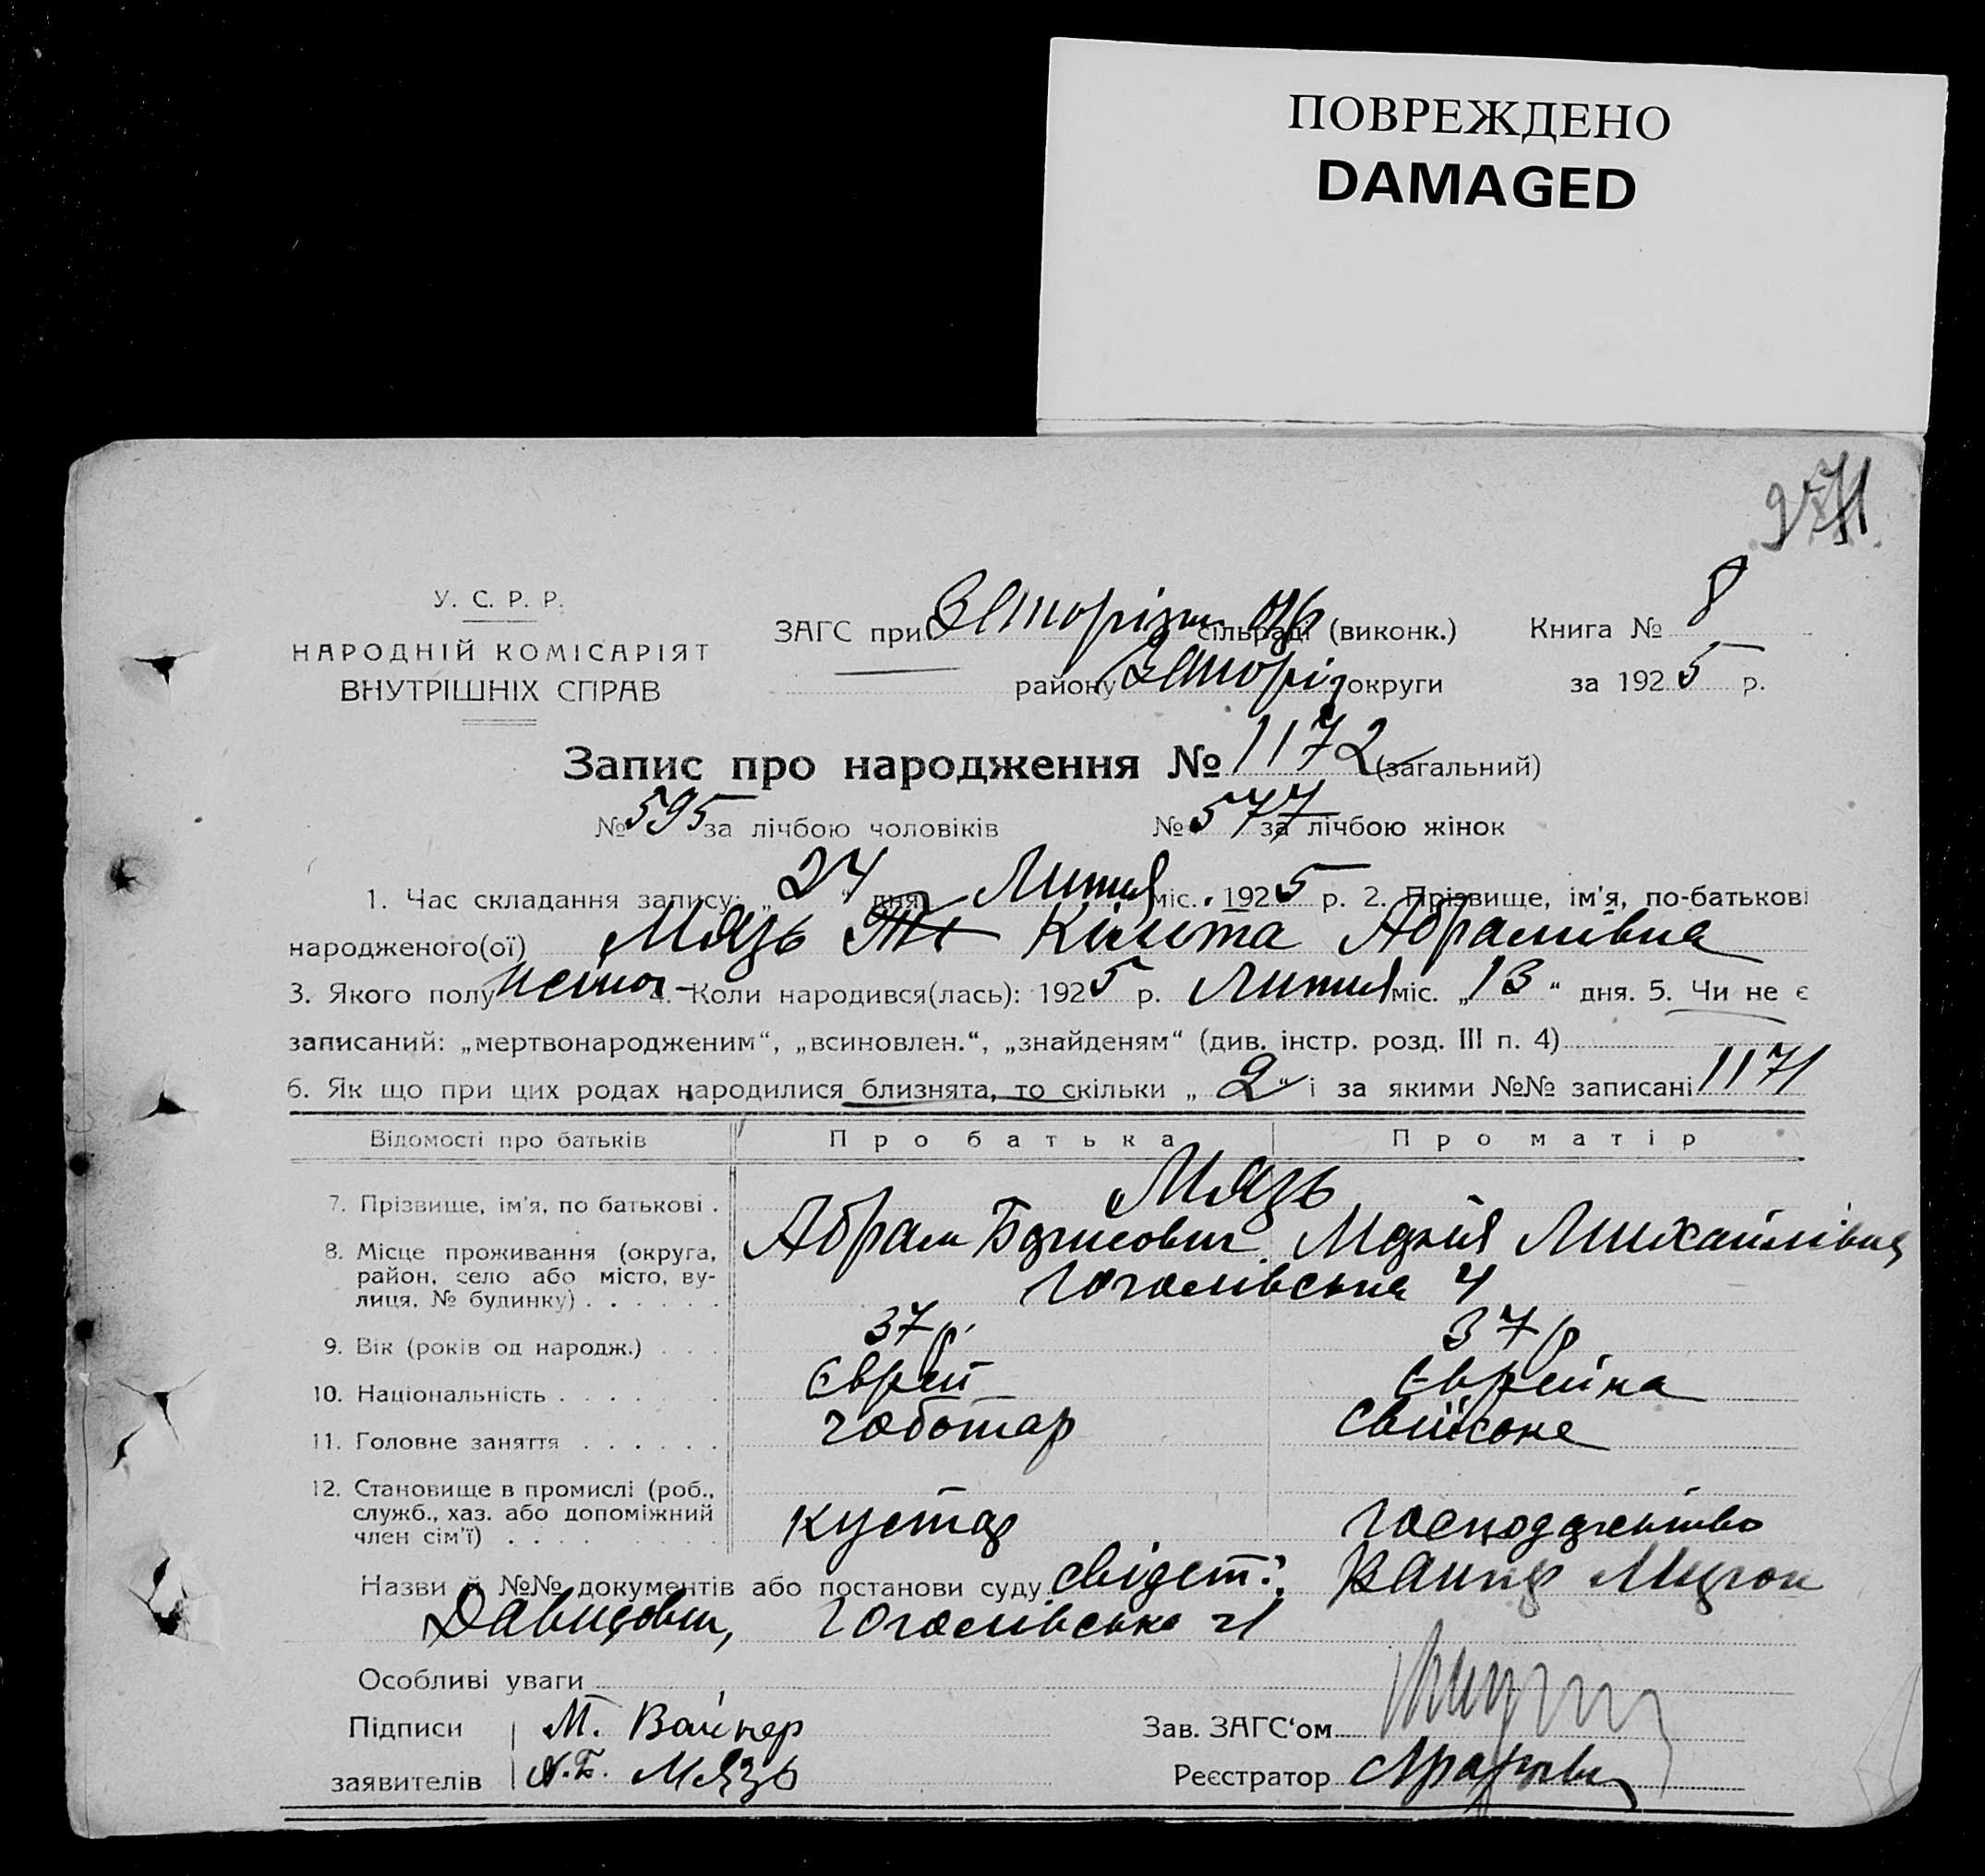 ПОВРЕЖДЕНО
DAMAGED
У. С. Р. Р.
НАРОДНІЙ КОМІСАРІЯТ
ВНУТРІШНІХ СПРАВ
ЗАГС при сільраді (виконк.) Книга № 8
району округи за 1925 р.
Запис про народження № 1172 (загальний)
№ 595 за лічбою чоловіків № 577 за лічбою жінок
1. Час складання запису: „24" дня Лютня міс. 1925 р. 2. Прізвище, ім'я, по-батькові
народженого(ої) Мязь Абрамівна
3. Якого полу 4. Коли народився(лась): 1925 р. Лютня міс. „13" дня. 5. Чи не є
записаний: „мертвонародженим", „всиновлен.", „знайденям" (див. інстр. розд. III п. 4)
6. Як що при цих родах народилися близнята, то скільки „2" і за якими №№ записані 1171
Відомості про батьків Про батька Про матір
7. Прізвище, ім'я, по батькові . Мязь
Абрам Борисович Марія Михайлівна
8. Місце проживання (округа,
район, село або місто, ву-
лиця, № будинку) . . . . . . Гоголівська 4
9. Вік (років од народж.) . . . 37 р. 37 р
10. Національність . . . . . . Єврей Єврейка
11. Головне заняття . . . . . . чоботар свійське
12. Становище в промислі (роб.,
служб., хаз. або допоміжний
член сім'ї) . . . . кустар господарство
Назви й №№ документів або постанови суду свідет: Вайнер Мирон
Давидович, Гоголівська 4
Особливі уваги
Підписи М. Вайнер Зав. ЗАГС'ом
заявителів А.Б. Мязь Реєстратор